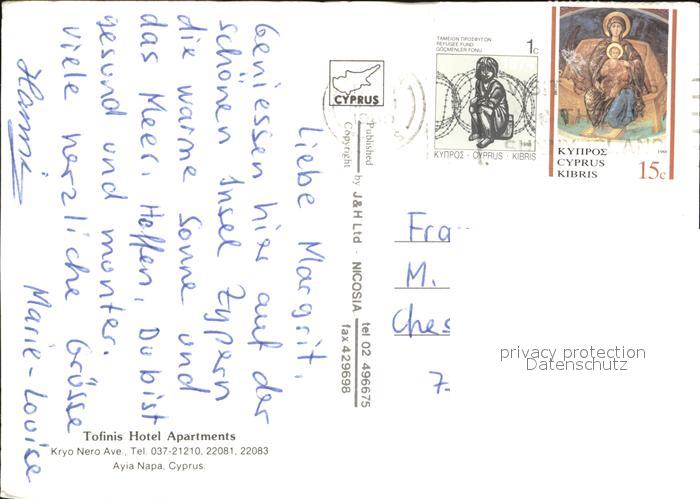 Liebe Margrit,
Geniessen hier auf der
schönen Insel Zypern
die warme Sonne und
das Meer. Hoffen, Du bist
gesund und munter.
Viele herzliche Grüsse
Hanni Marie-Louise
Tofinis Hotel Apartments
Kryo Nero Ave., Tel. 037-21210, 22081, 22083
Ayia Napa, Cyprus.
CYPRUS
Published by J&H Ltd · NICOSIA tel 02 496675
Copyright fax 429698
ΤΑΜΕΙΟΝ ΠΡΟΣΦΥΓΩΝ
REFUGEE FUND
GÖÇMENLER FONU
1c
ΚΥΠΡΟΣ · CYPRUS · KIBRIS
ΚΥΠΡΟΣ 1988
CYPRUS
KIBRIS 15c
Fra
M.
Ches
7
privacy protection
Datenschutz